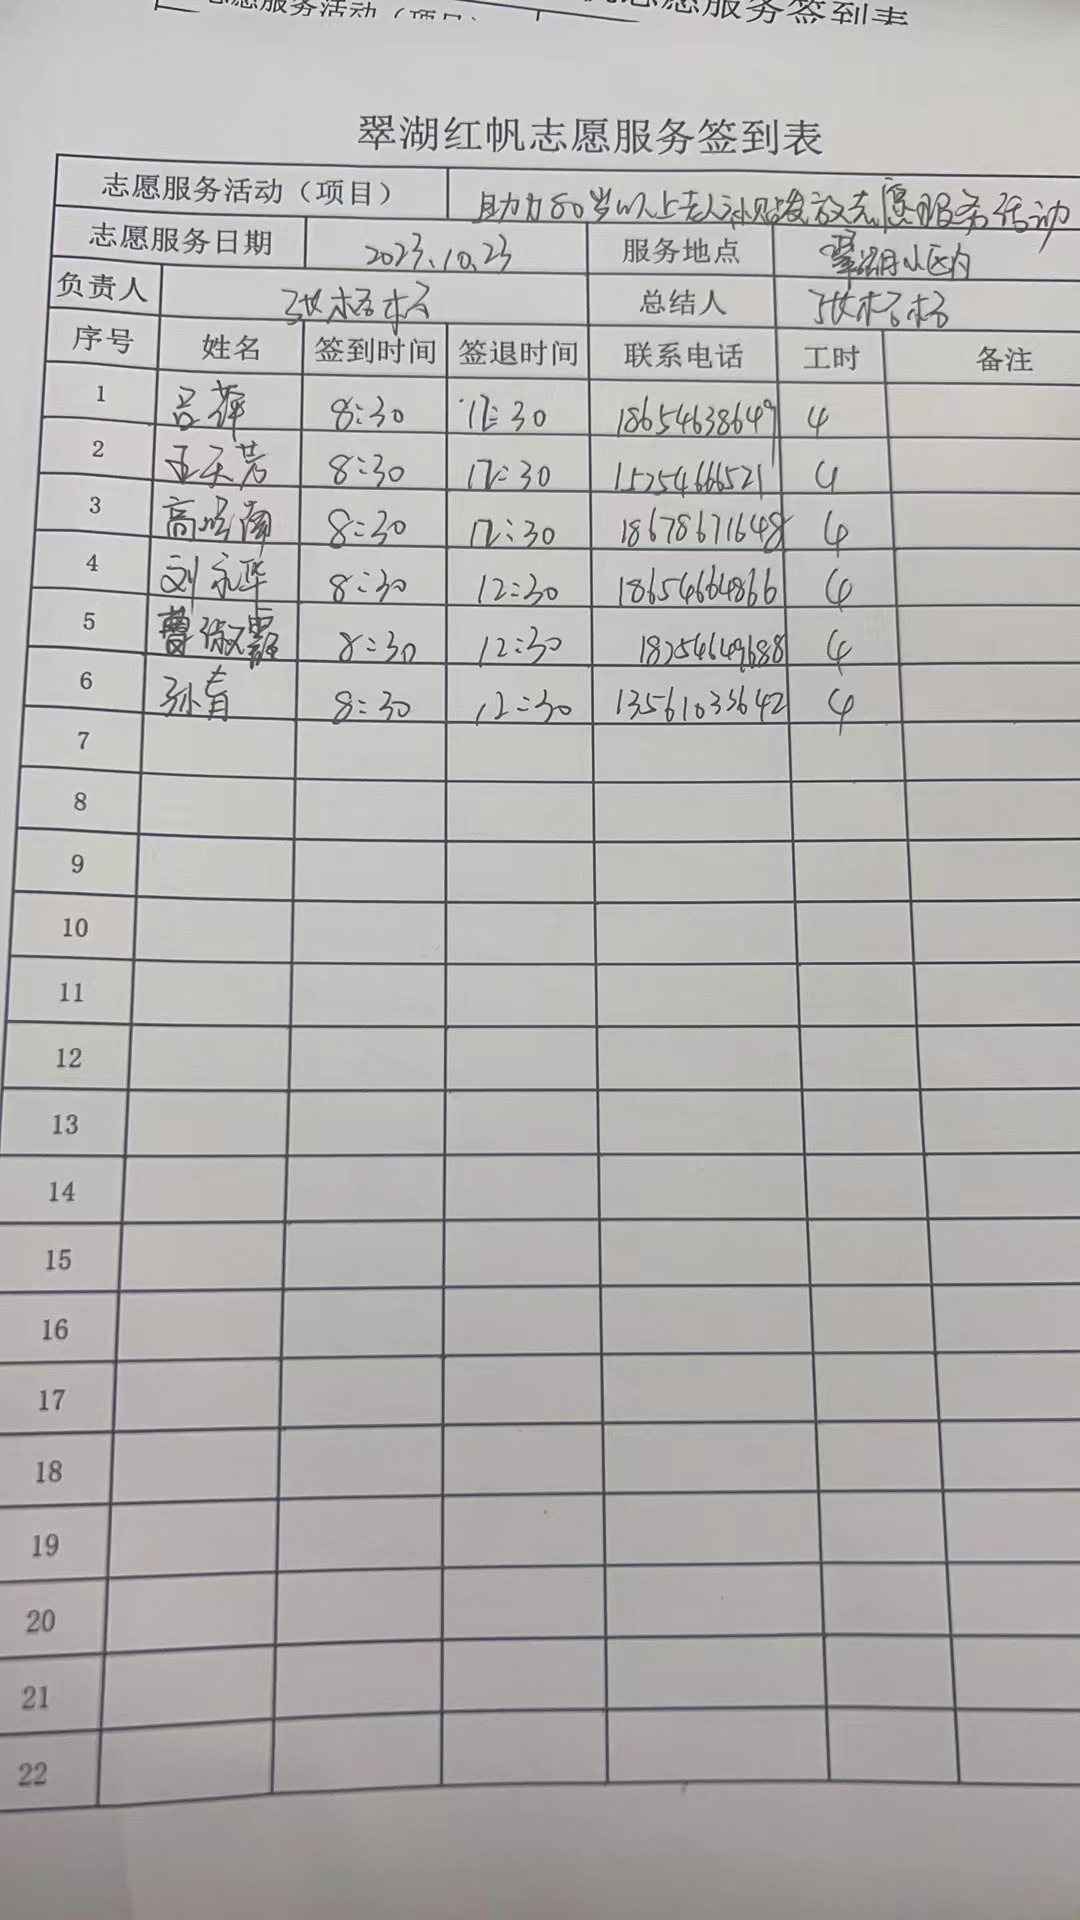 志愿服务活动（项目）
志愿服务签到表
翠湖红帆志愿服务签到表
志愿服务活动（项目） 助力80岁以上老人补贴发放志愿服务活动
志愿服务日期 2023.10.23 服务地点 翠湖小区内
负责人 张格格 总结人 张格格
序号 姓名 签到时间 签退时间 联系电话 工时 备注
1 吕萍 8:30 12:30 18654638649 4
2 王天芳 8:30 12:30 15254666521 4
3 8:30 12:30 18678671648 4
4 刘永华 8:30 12:30 18654664866 4
5 曹淑霞 8:30 12:30 18254649688 4
6 孙青 8:30 12:30 13561033642 4
7
8
9
10
11
12
13
14
15
16
17
18
19
20
21
22